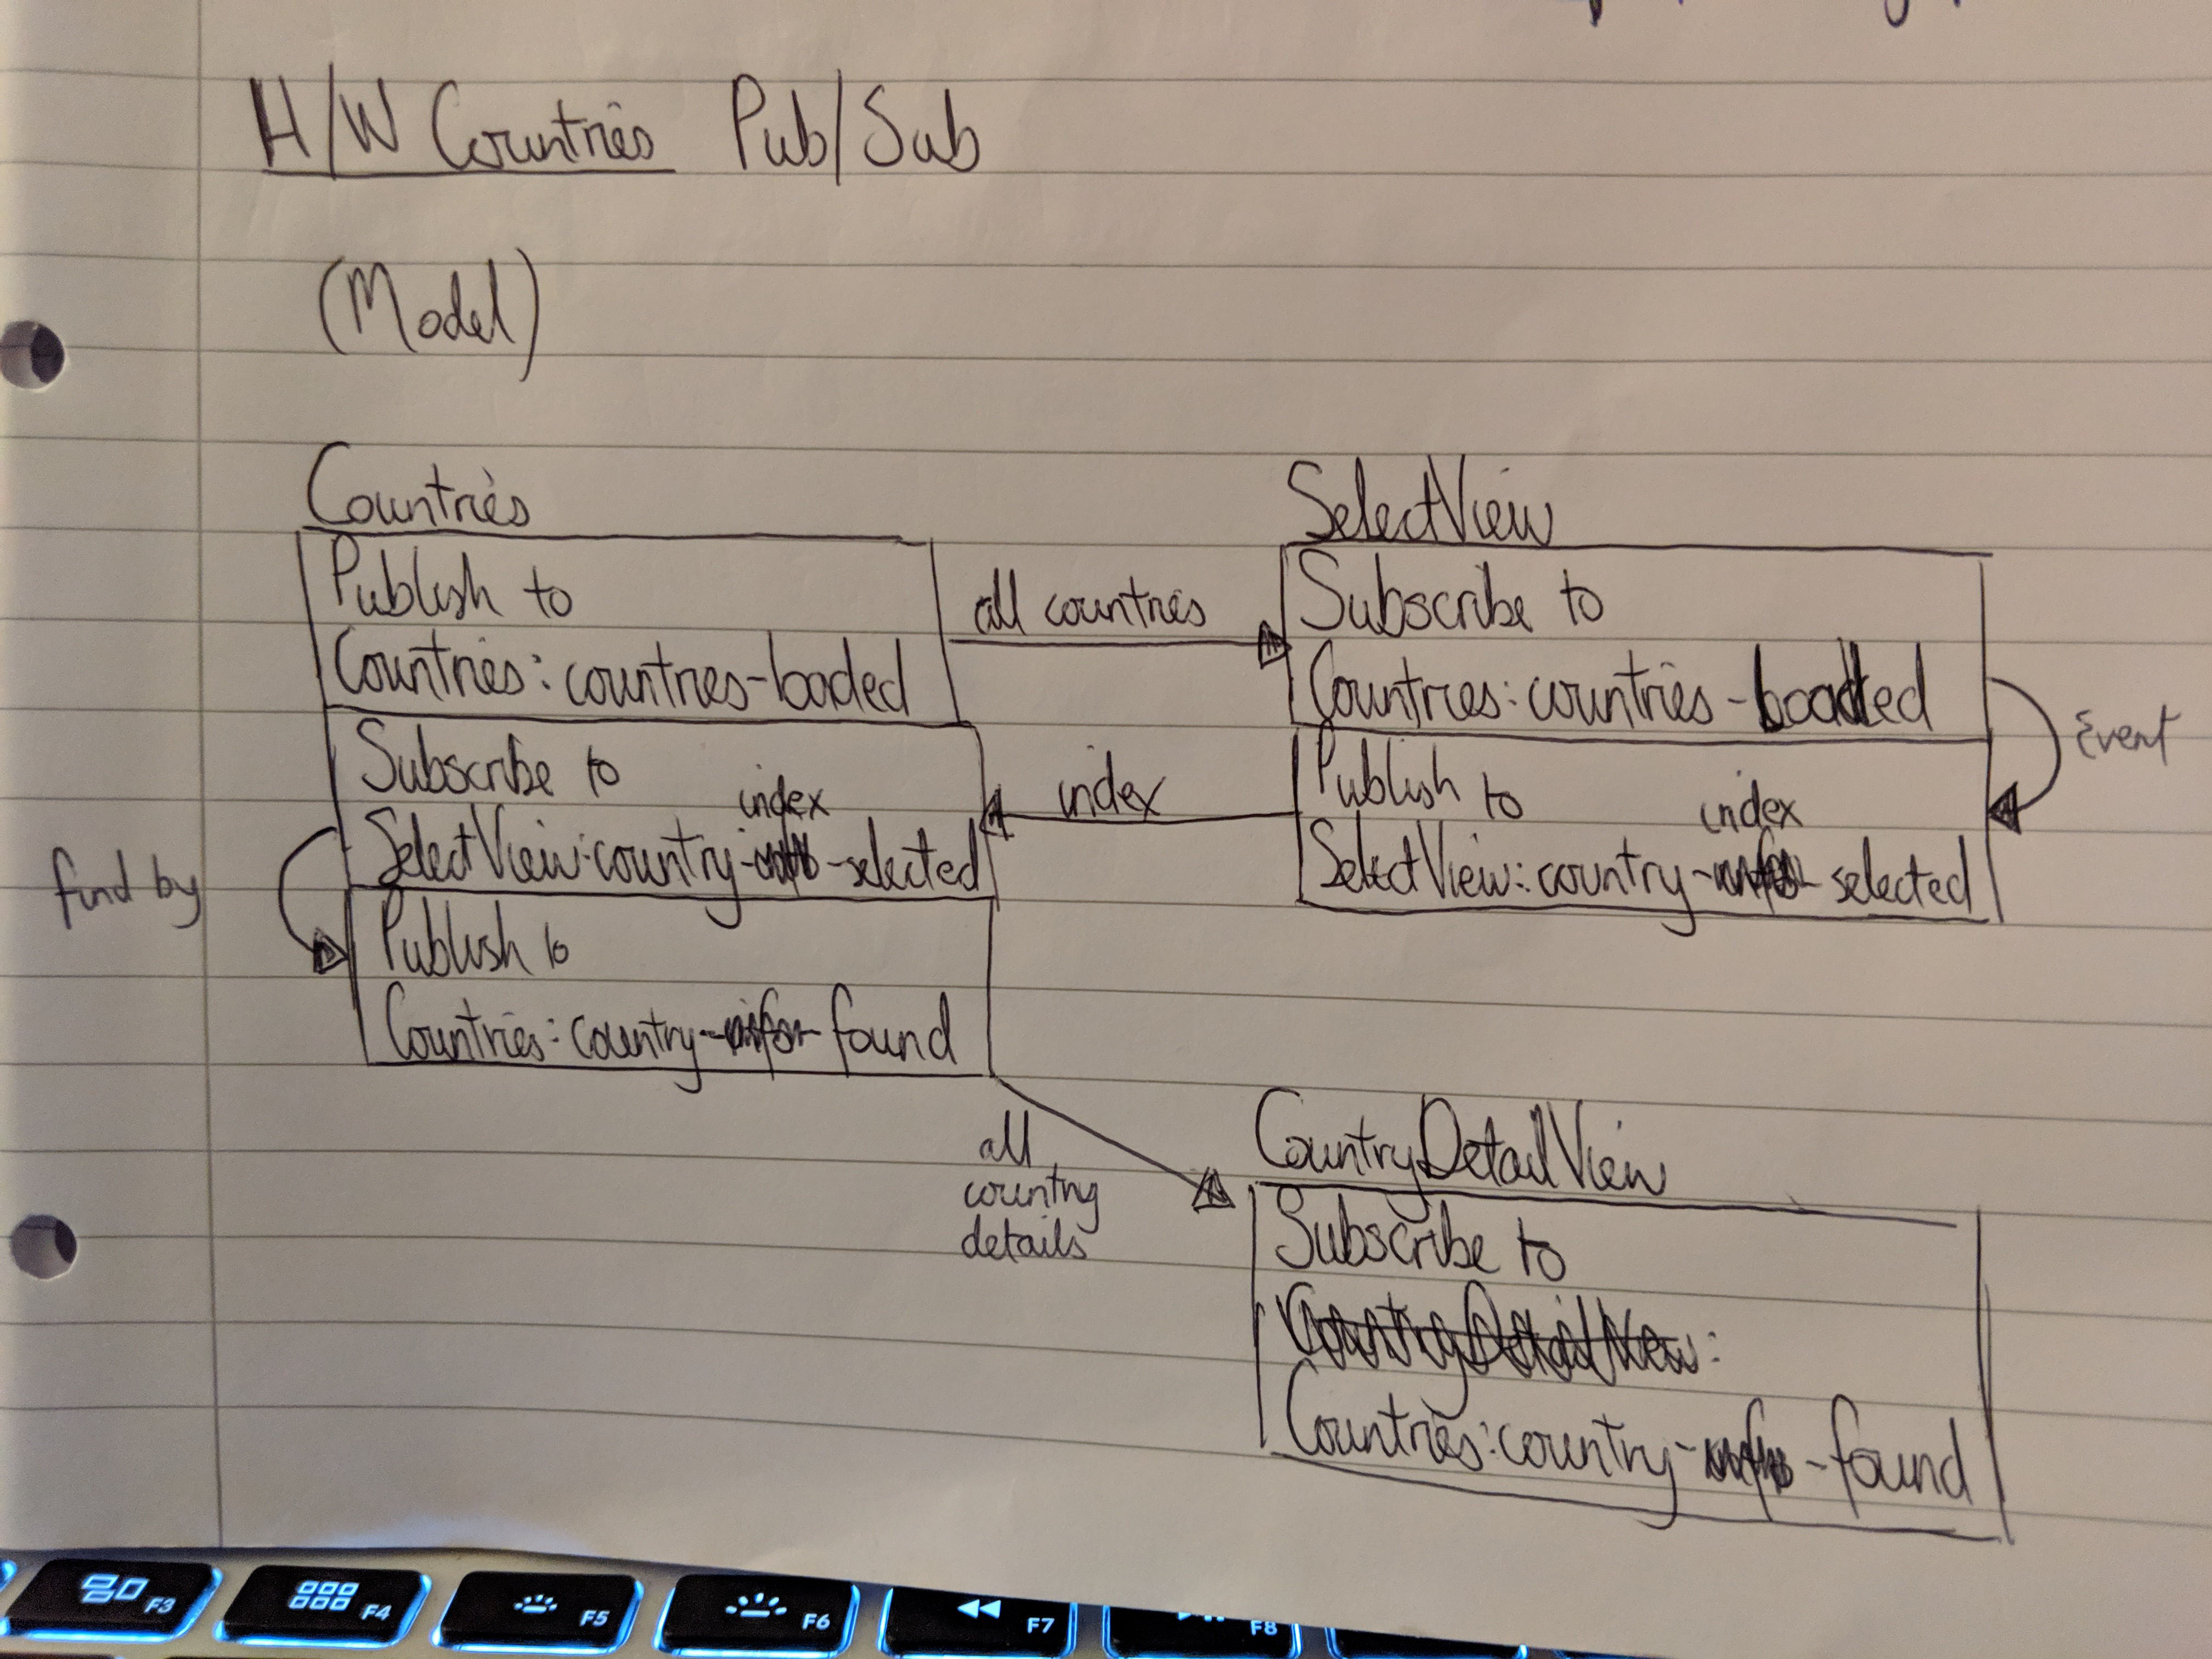 H/W Countries Pub/Sub
(Model)
Countries
Publish to
Countries:countries-loaded
Subscribe to
index
SelectView:country- -selected
Publish to
Countries:country- found
find by
all countries
index
SelectView
Subscribe to
Countries:countries-loaded
Publish to
index
SelectView:country- selected
Event
all
country
details
CountryDetailView
Subscribe to
CountryDetailView:
Countries:country- -found
F3 F4 F5 F6 F7 F8